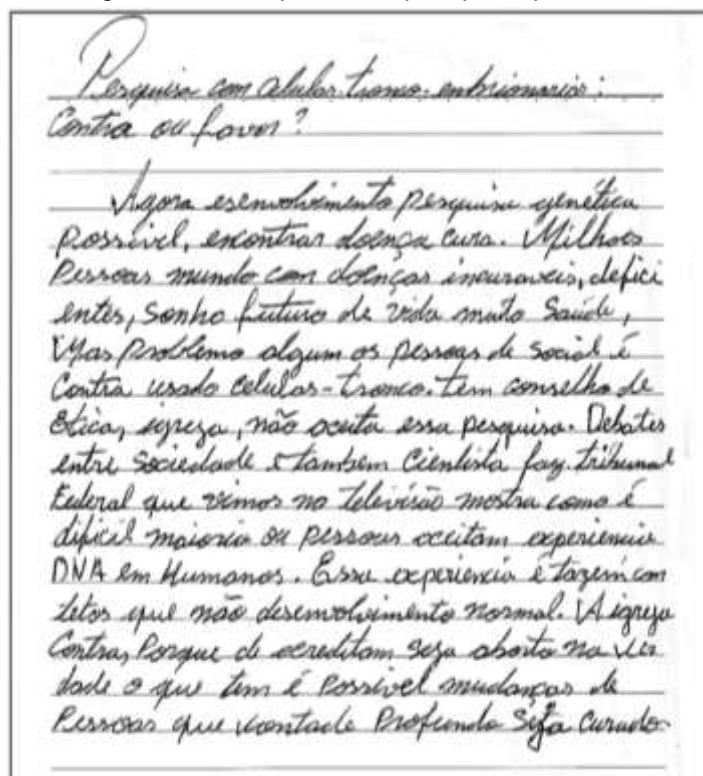 Pesquisa com célular-tronco-embrionarias:
Contra ou favor?
Agora esenvolvimento pesquisa genética
possível, encontrar doença cura. Milhoes
Pessoas mundo com doenças incuraveis, defici
entes, sonho futuro de vida muito Saúde,
Mas Problema algum as pessoas de social é
Contra usado celulas-tronco. tem conselho de
Etica, igreja, não aceita essa pesquisa. Debates
entre Sociedade e tambem Cientista faz tribunal
Federal que vimos no televisão mostra como é
dificil maioria ou pessoas aceitam experiencia
DNA em Humanos. Essa experiencia é fazem com
fetos que não desenvolvimento normal. A igreja
Contra, Porque de acreditam seja aborto na ver
dade o que tem é Possível mudanças de
Pessoas que vontade Profunda Seja Curado.